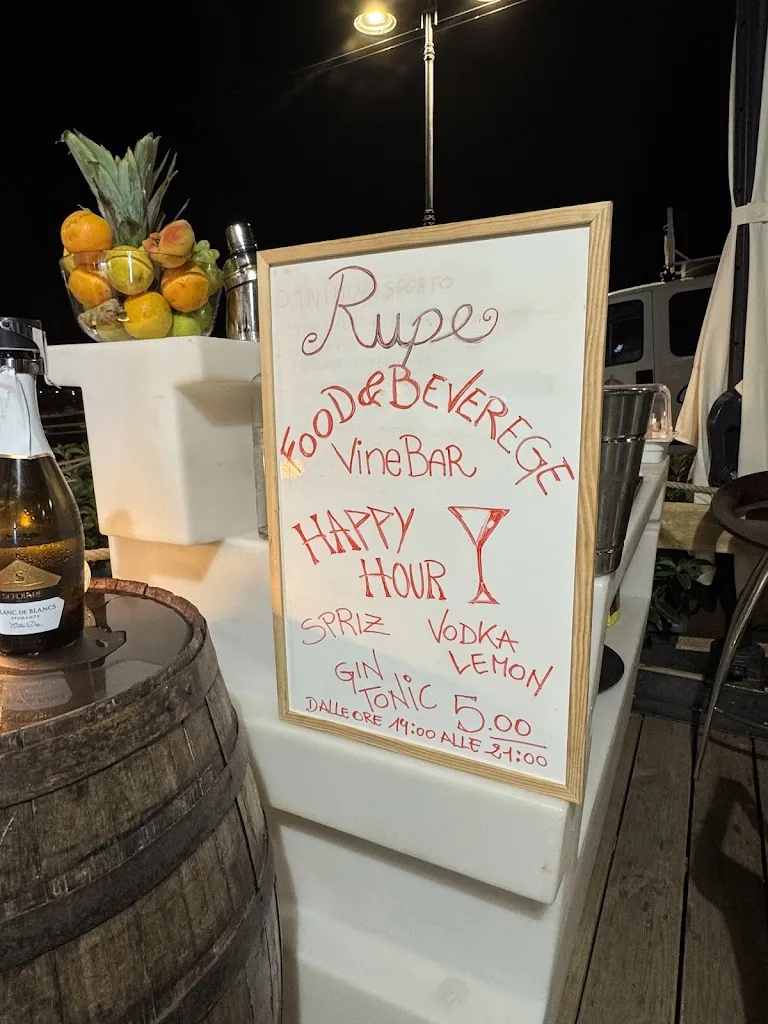 Rupe
FOOD & BEVEREGE
VineBAR
HAPPY
HOUR
SPRIZ
VODKA
LEMON
GIN
TONIC
5.00
DALLE ORE 19:00 ALLE 21:00
BLANC DE BLANCS